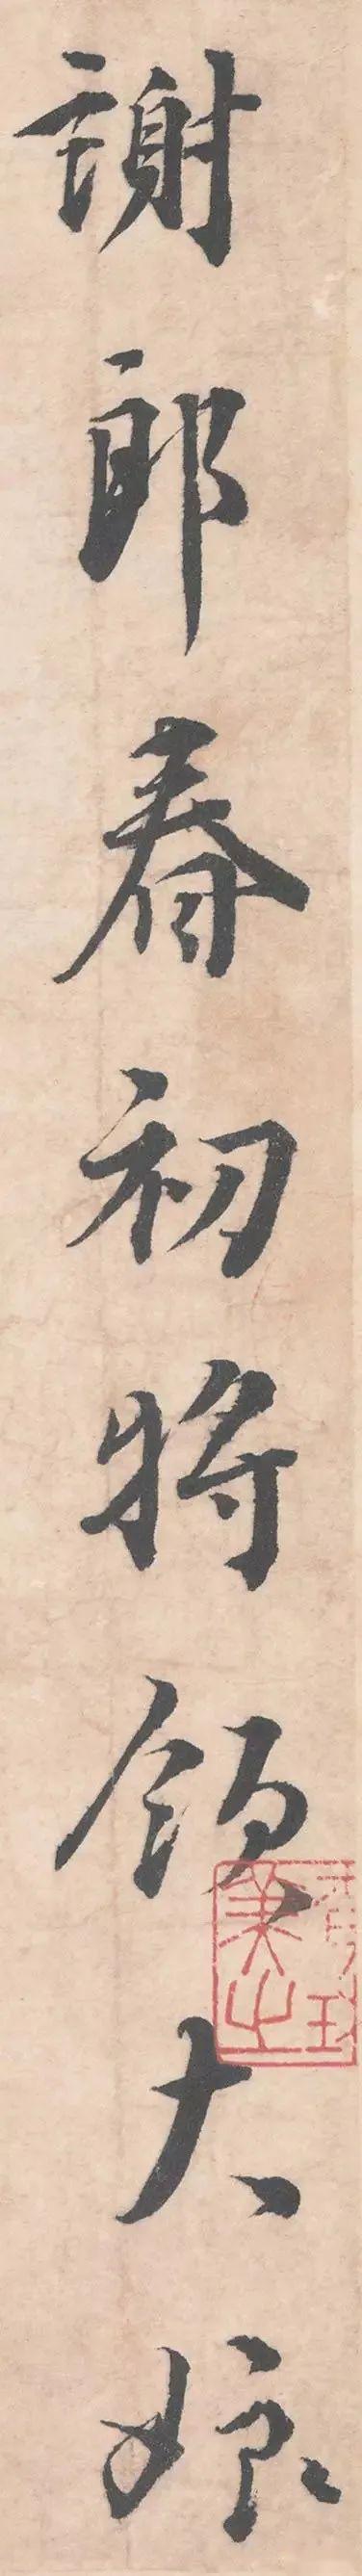 謝郎春初將領大娘